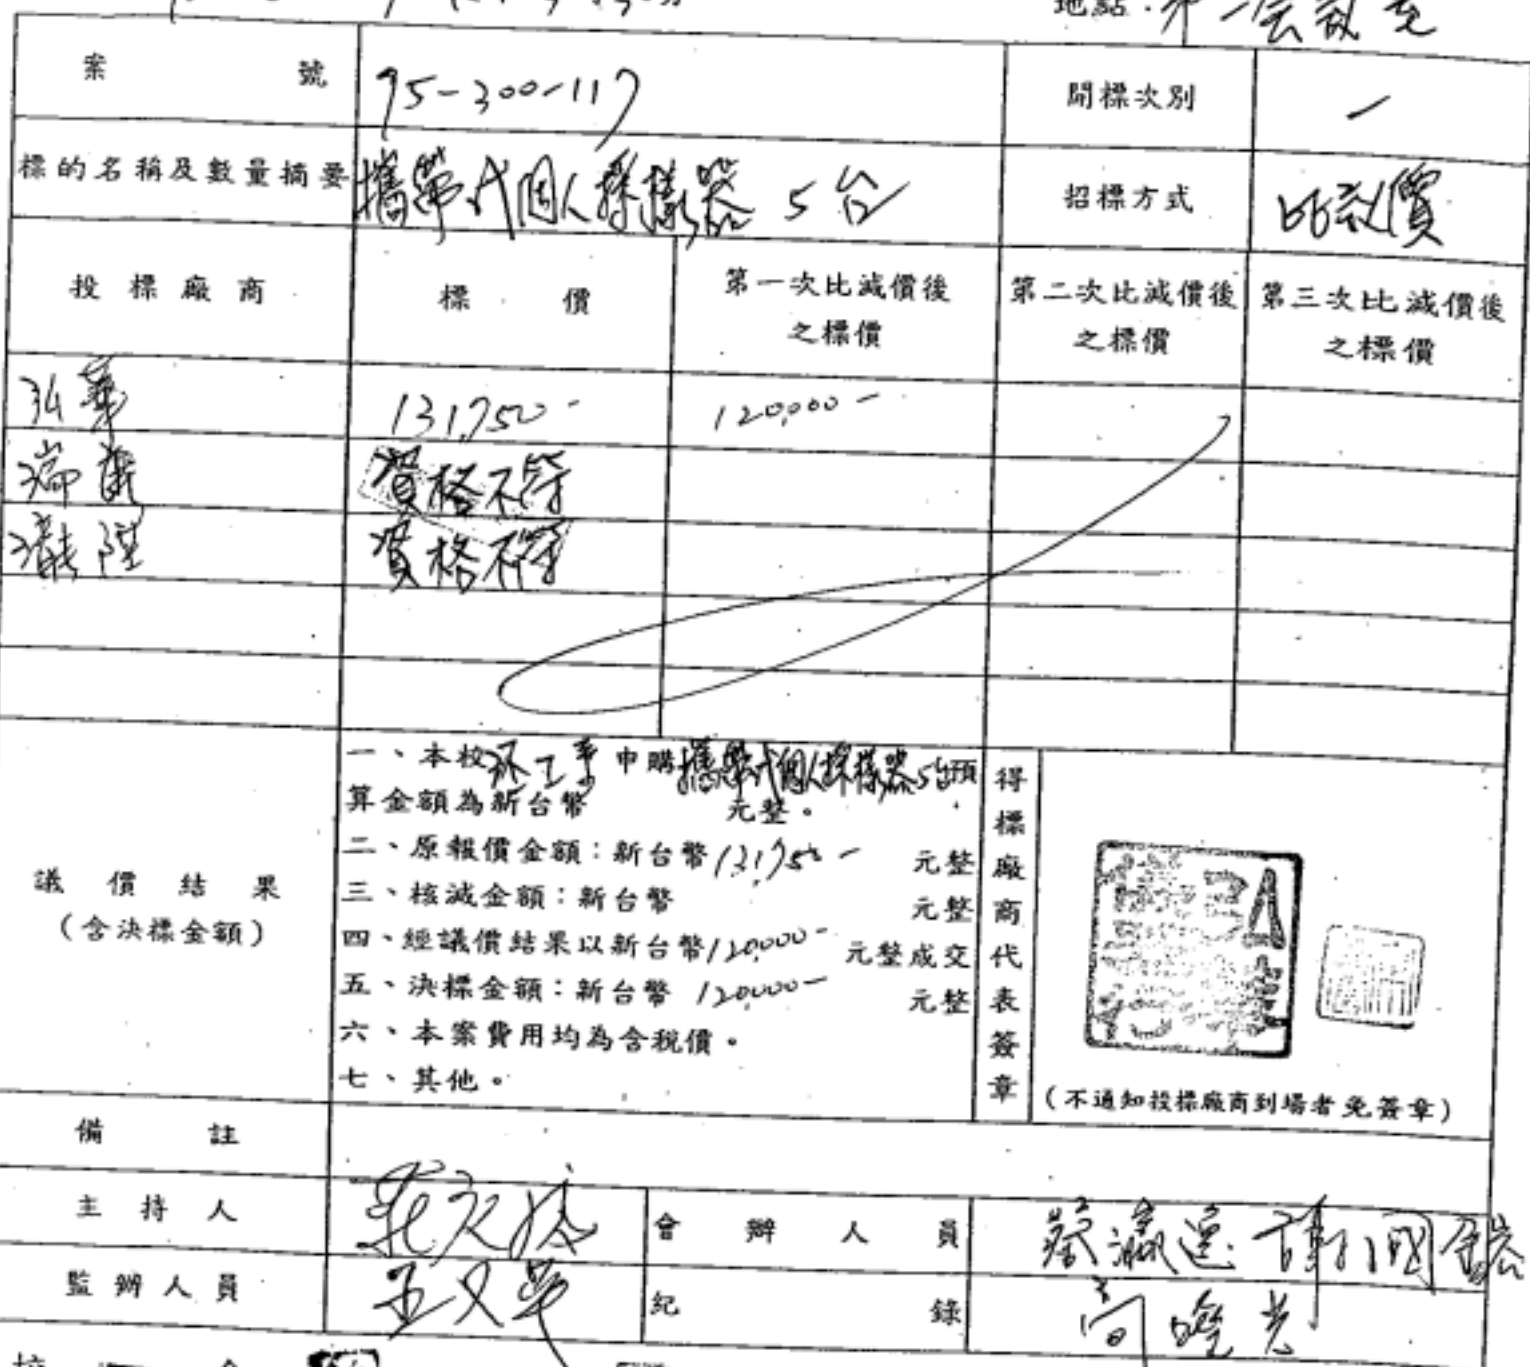 地點：第一會議室
案號 95-300-117 開標次別 一
標的名稱及數量摘要 攜帶式個人採樣器 5台 招標方式 比議價
投標廠商 標價 第一次比減價後之標價 第二次比減價後之標價 第三次比減價後之標價
131,750- 120,000-
資格不符
資格不符
議價結果
（含決標金額）
一、本校環工系申購攜帶式個人採樣器5台預
算金額為新台幣 元整。
二、原報價金額：新台幣131,750- 元整
三、核減金額：新台幣 元整
四、經議價結果以新台幣120,000-元整成交
五、決標金額：新台幣 120,000- 元整
六、本案費用均為含稅價。
七、其他。
得標廠商代表簽章
（不通知投標廠商到場者免簽章）
備註
主持人 會辦人員
監辦人員 紀錄